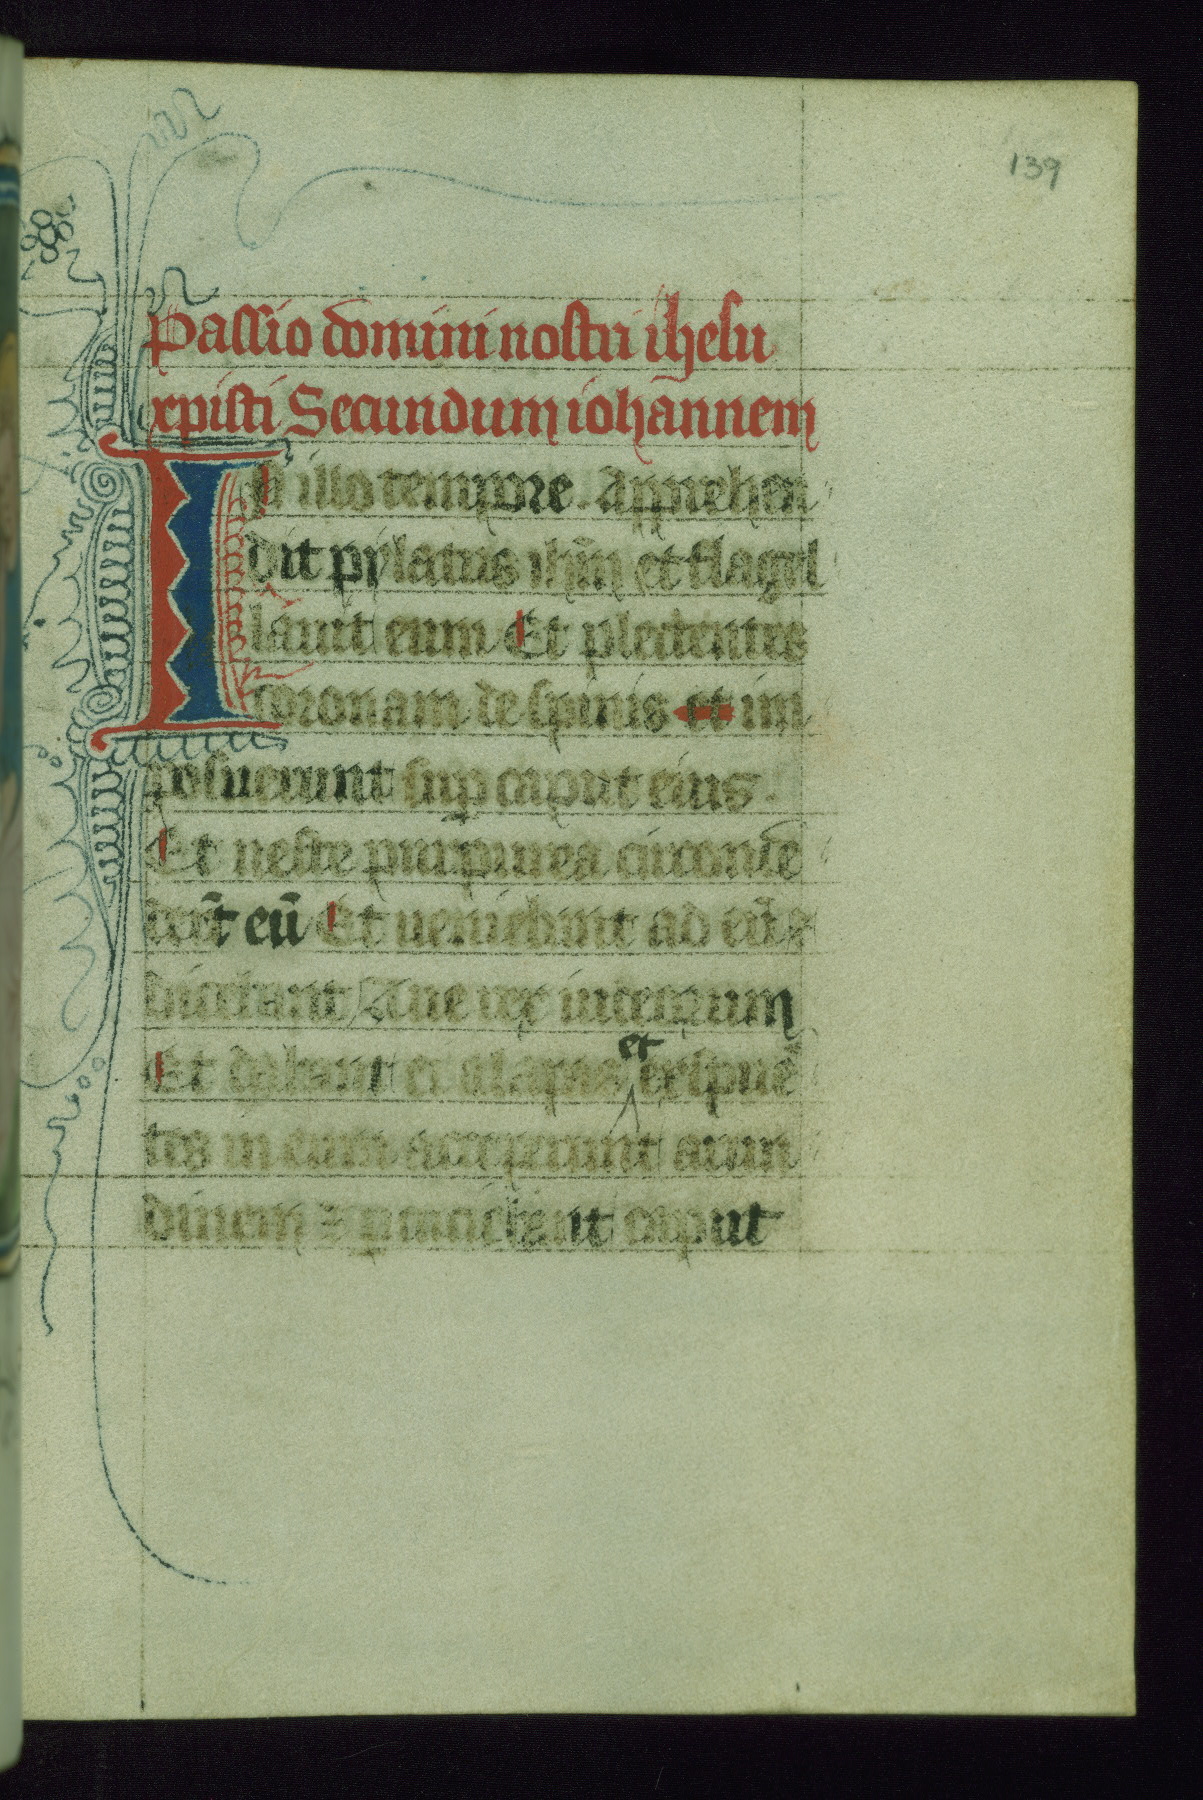 139
Passio domini nostri ihesu
xpisti Secundum iohannem
In illo tempore. Apprehen
dit pylatus ihm̄ et flagel
lauit eum Et plectentes
coronam de spinis et im
posuerunt sup caput eius.
Et ueste purpurea circonde
der̄t eū Et ueniebant ad eū ⁊
dicebant Aue rex iudeorum
et
Et dabant ei alapas exspuē
tes in eum acceperunt arun
dinem ⁊ percuciebant caput